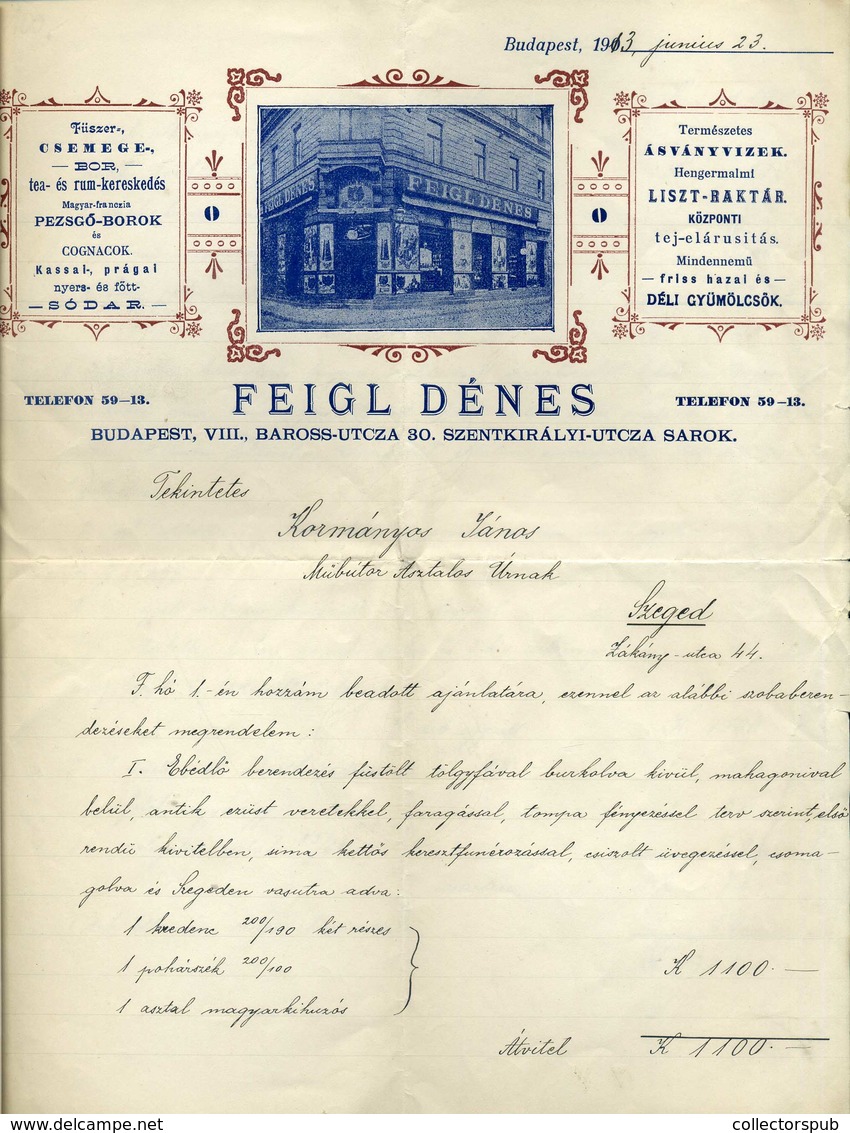 Budapest, 1913, junius 23.
Füszer-,
CSEMEGE-,
— BOR, —
tea- és rum-kereskedés
Magyar-franczia
PEZSGŐ-BOROK
és
COGNACOK.
Kassai-, prágai
nyers- és főtt-
— SÓDAR. —
FEIGL DÉNES
FEIGL DÉNES
Természetes
ÁSVÁNYVIZEK.
Hengermalmi
LISZT-RAKTÁR.
KÖZPONTI
tej-elárusitás.
Mindennemü
— friss hazai és —
DÉLI GYÜMÖLCSÖK.
TELEFON 59–13.
FEIGL DÉNES
TELEFON 59–13.
BUDAPEST, VIII., BAROSS-UTCZA 30. SZENTKIRÁLYI-UTCZA SAROK.
Tekintetes
Kormányos János
Műbútor Asztalos Úrnak
Szeged
Zákány-utca 44.
F. hó 1.-én hozzám beadott ajánlatára, ezennel az alábbi szobaberen-
dezéseket megrendelem:
I. Ebédlő berendezés füstölt tölgyfával burkolva kivül, mahagonival
belül, antik ezüst veretekkel, faragással, tompa fényezéssel terv szerint, első
rendü kivitelben, sima kettős keresztfunérozással, csiszolt üvegezéssel, csoma-
golva és Szegeden vasutra adva:
1 kredenc 200/190 két részes
1 pohárszék 200/100
K 1100.—
1 asztal magyarkihuzós
Átvitel K 1100.—
delcampe.net
collectorspub